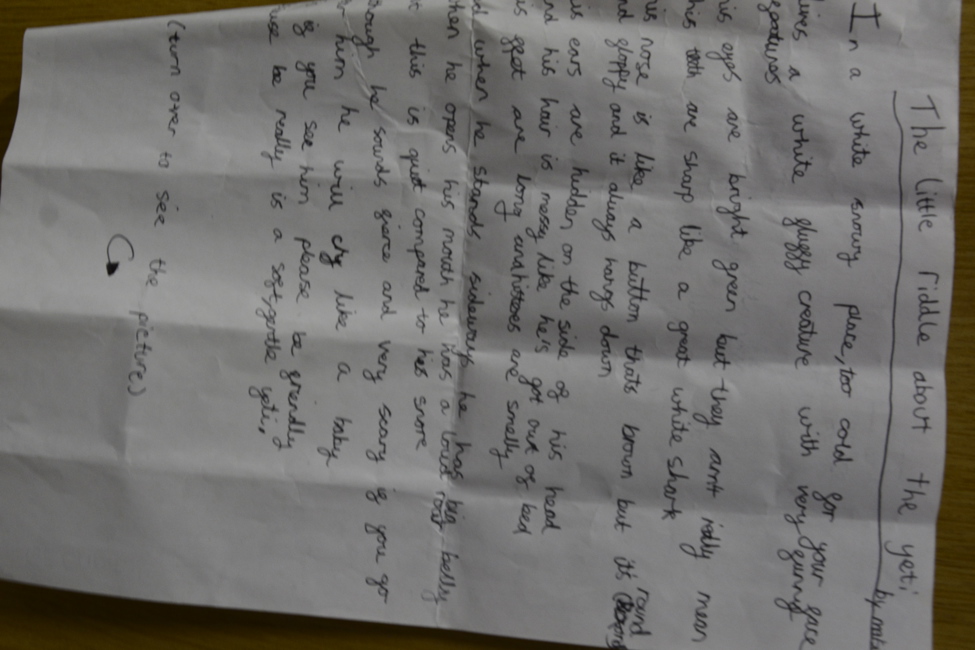 The little riddle about the yeti
by
In a white snowy place, too cold for your face
lives a white fluffy creature with very funny
features
his eyes are bright green but they arn't really mean
his teeth are sharp like a great white shark
his nose is like a button thats brown but it's round
nd floppy and it always hangs down
is ears are hidden on the side of his head
nd his hair is messy like he's got out of bed
is feet are long and his toes are smelly
d when he stands sideways he has big belly
hen he opens his mouth he has a loud roar
t this is quiet compared to his snore
hough he sounds fierce and very scary if you go
him he will cry like a baby
if you see him please be friendly
use he really is a soft, gentle yeti.
(turn over to see the picture)